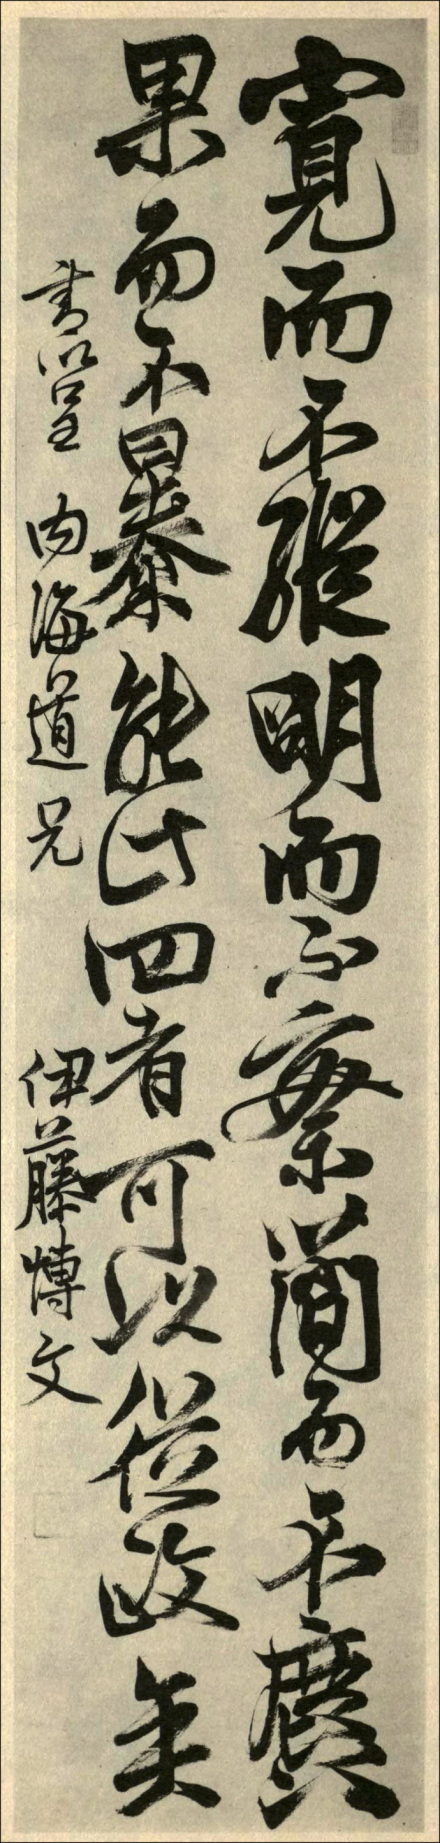 寛而不縱明而不察簡而不廣
果而不暴能此四者可以從政矣
書以呈 内海道兄 伊藤博文